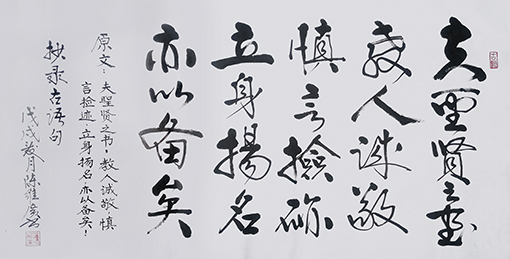 夫聖贤之書
教人诚敬
慎言撿跡
立身揚名
亦以备矣
原文：夫聖贤之书，教人诚敬，慎
言捡迹，立身扬名，亦以备矣！
抄录古语句
戊戌 月陈维